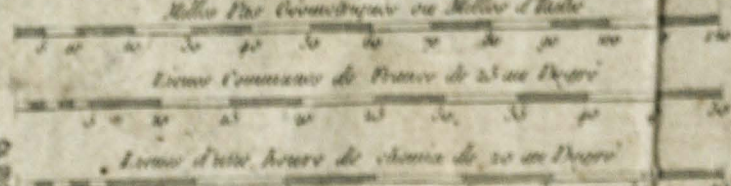 Milles Pas Geometriques ou Milles d'Italie
5 10 20 30 40 50 60 70 80 90 100 120
Lieues Communes de France de 25 au Degré
5 10 15 20 25 30 35 40 50
Lieues d'une heure de chemin de 20 au Degré